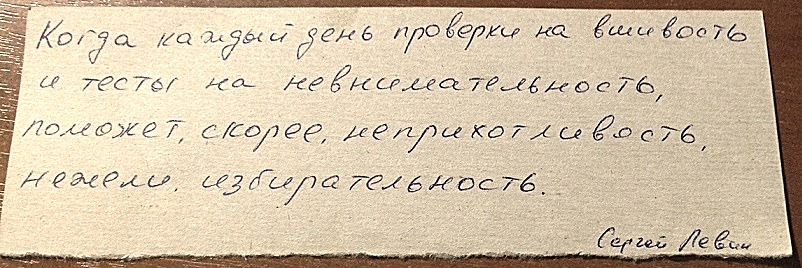 Когда каждый день проверки на вшивость
и тесты на невнимательность,
поможет, скорее, неприхотливость,
нежели, избирательность.
Сергей Левин